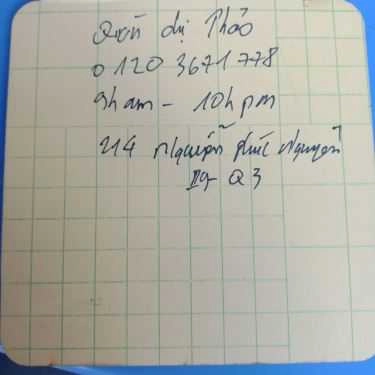 Quán chị Thảo
0120 3671 778
9h am - 10h pm
214 Nguyễn Phúc Nguyên
Q3